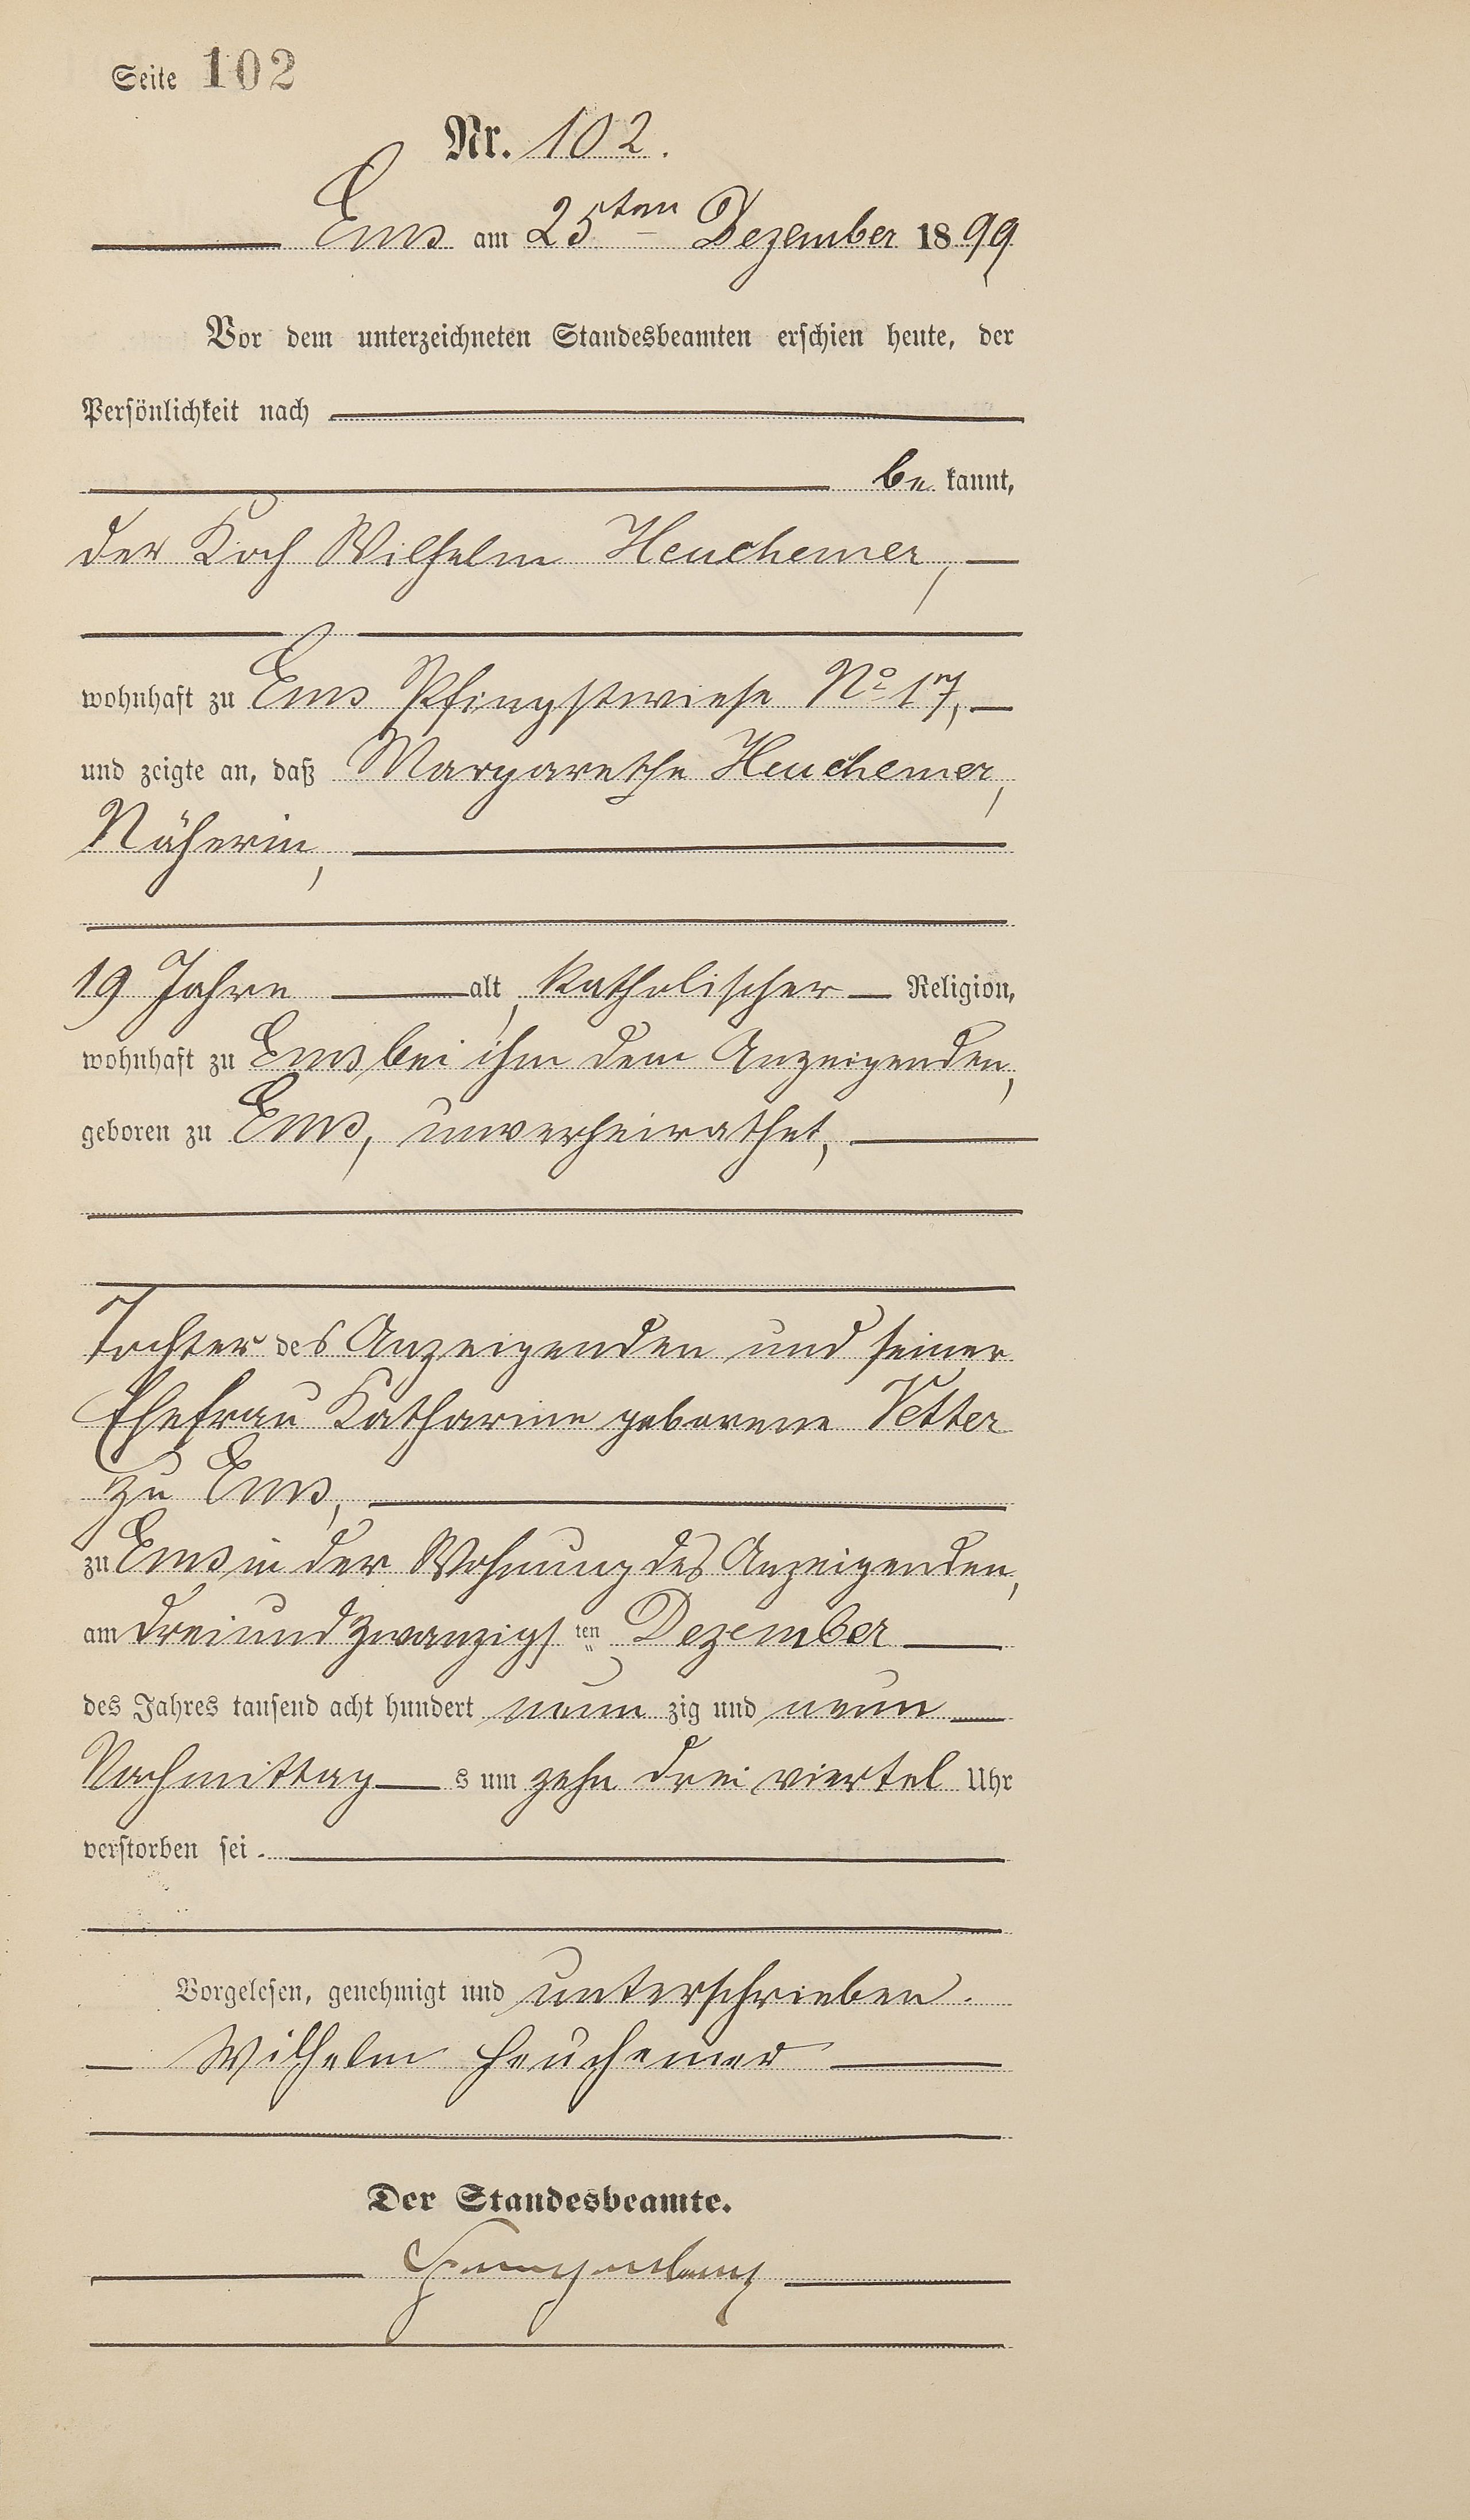 Seite 102
Nr. 102.
Ems am 25ten Dezember 1899
Vor dem unterzeichneten Standesbeamten erschien heute, der
Persönlichkeit nach
be kannt,
der Koch Wilhelm Heuchemer,
wohnhaft zu Ems Pfingstwiese No 17,
und zeigte an, daß Margarethe Heuchemer,
Näherin,
19 Jahre alt, katholischer Religion,
wohnhaft zu Ems bei ihm dem Anzeigenden,
geboren zu Ems, unverheirathet,
Tochter des Anzeigenden und seiner
Ehefrau Katharine geborene Vetter
zu Ems,
zu Ems in der Wohnung des Anzeigenden,
am dreiundzwanzigs ten Dezember
des Jahres tausend acht hundert neun zig und neun
Nachmittag s um zehn drei viertel Uhr
verstorben sei.
Vorgelesen, genehmigt und unterschrieben.
Wilhelm Heuchemer
Der Standesbeamte.